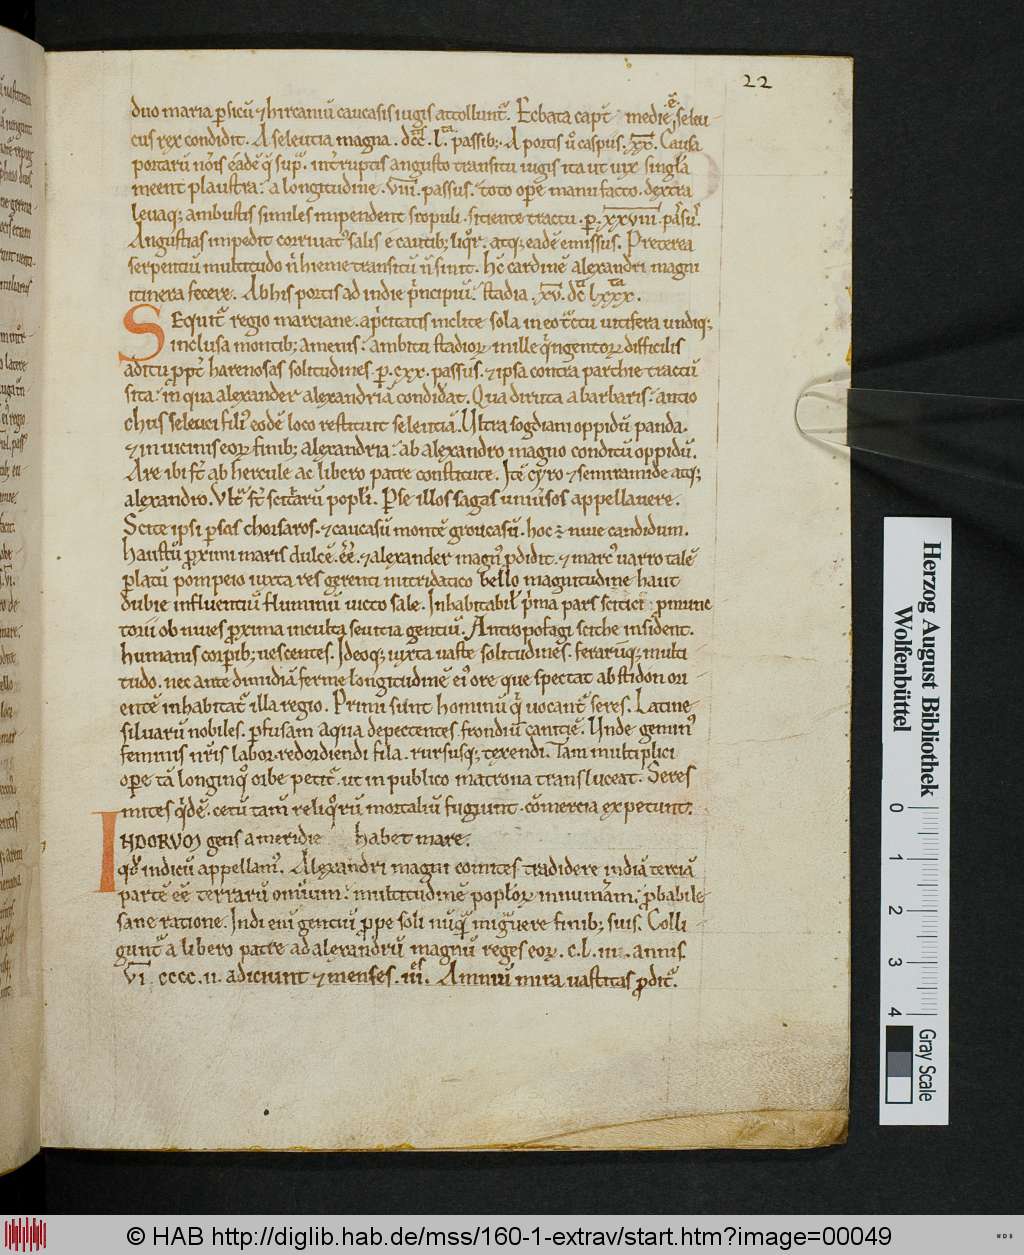 22
duo maria ꝑsicū ⁊ hircaniū caucasis iugis attollunt̃. Ecbata capt̃ medie ē, seleu
cus rex condidit. A seleutia magna . dcc̃. l. passib;. A portis ũ caspiis . xx̄. Causa
portarū nõis eadē q̃ sup̃. int̃ruptis angusto transitu iugis ita ut uix singľa
meent plaustra. a longitudine . viii. passus. toto oꝑe manu facto. dextra
leuaq; ambustis similes inpendent scopuli. sitiente tractu. ꝑ. xxviii. passu.
Angustias impedit corriuat᾽ salis e cautib; liq̃r. atq; eadē emissus. Preterea
serpentiū multitudo ñ hieme transitū ñ sinit. H̃ cardinē alexandri magni
itinera fecere. Ab his portis ad indie p̃ncipiū. stadia. xv. dc̃ lxxx.
SEquit̃ regio marciane. apricitatis inclite sola in eo t̃ctu uitifera undiq;
inclusa montib; amenis. ambitu stadioꝝ mille q̃ngentoꝝ difficilis
aditu ꝓpt̃ harenosas solitudines ꝑ. cxx. passus. ⁊ ipsa contra parthie tractū
sita. in qua alexander alexandriā condidat. Qua diruta a barbaris. antio
chus seleuci fili᾽ eodē loco restituit seleutiā. Ultra sogdiam oppidū panda.
⁊ in uicinis eoꝝ finib; alexandria. ab alexandro magno conditū oppidū.
Are ibi st̃ ab hercule ac libero patre constitute. Itē cyro ⁊ semiramide atq;
alexandro. Vlt̃ st̃ scitarū popľi. Pse illos sagas uniũsos appellauere.
Scite ipsi ꝑsas chorsaros. ⁊ caucasū montē groucasū. hoc ē niue candidum.
Haustū ꝓximi maris dulcē. ēē. ⁊ alexander magn᾽ ꝓdidit. ⁊ marc᾽ uarro talē
ꝑlatū pompeio iuxta res gerenti mitridatico bello magnitudine haut
dubie influentiū fluminū uicto sale. Inhabitabiľ p̃ma pars scitici ꝓmunc
torii ob niues ꝓxima inculta seuitia gentiū. Antropofagi scithe insident.
humanis corꝑib; uescentes. Ideoq; iuxta uaste solitudines. ferarūq; multi
tudo. nec ante dimidiā ferme longitudinē ei᾽ ore que spectat ab stidon ori
entē inhabitat̃ illa regio. Primi sunt hominū q̃ uocant̃ seres. Latine
siluarū nobiles. ꝑfusam aqua depectentes frondiū canitiē. Unde gemin᾽
feminis nr̃is labor redordiendi fila. rursusq; texendi. Tam multiplici
oꝑe tā longinq᾽ orbe petit̃. ut in publico matrona transluceat. Seres
mites q̃dē. cetū tam̃ reliq̃rū mortaliū fugiunt. cōmercia expetunt.
INDORVM gens a meridie habet mare.
qd̃ indicū appellam᾽. Alexandri magni comites tradidere indiā terciā
partē ēē terrarū omnium. multitudinē popľoꝝ innum̃am. ꝓbabile
sane ratione. Indi eni gentiū ꝓpe soli nūq̃ mig̃uere finib; suis. Colli
gunt̃ a libero patre ad alexandrū magnū reges eoꝝ. c.l.iii. annis
vi. cccc.ii. adiciunt ⁊ menses. iii. Amniū mira uastitas ꝓdit̃.
Herzog August Bibliothek
Wolfenbüttel
0 1 2 3 4
Gray Scale
© HAB http://diglib.hab.de/mss/160-1-extrav/start.htm?image=00049